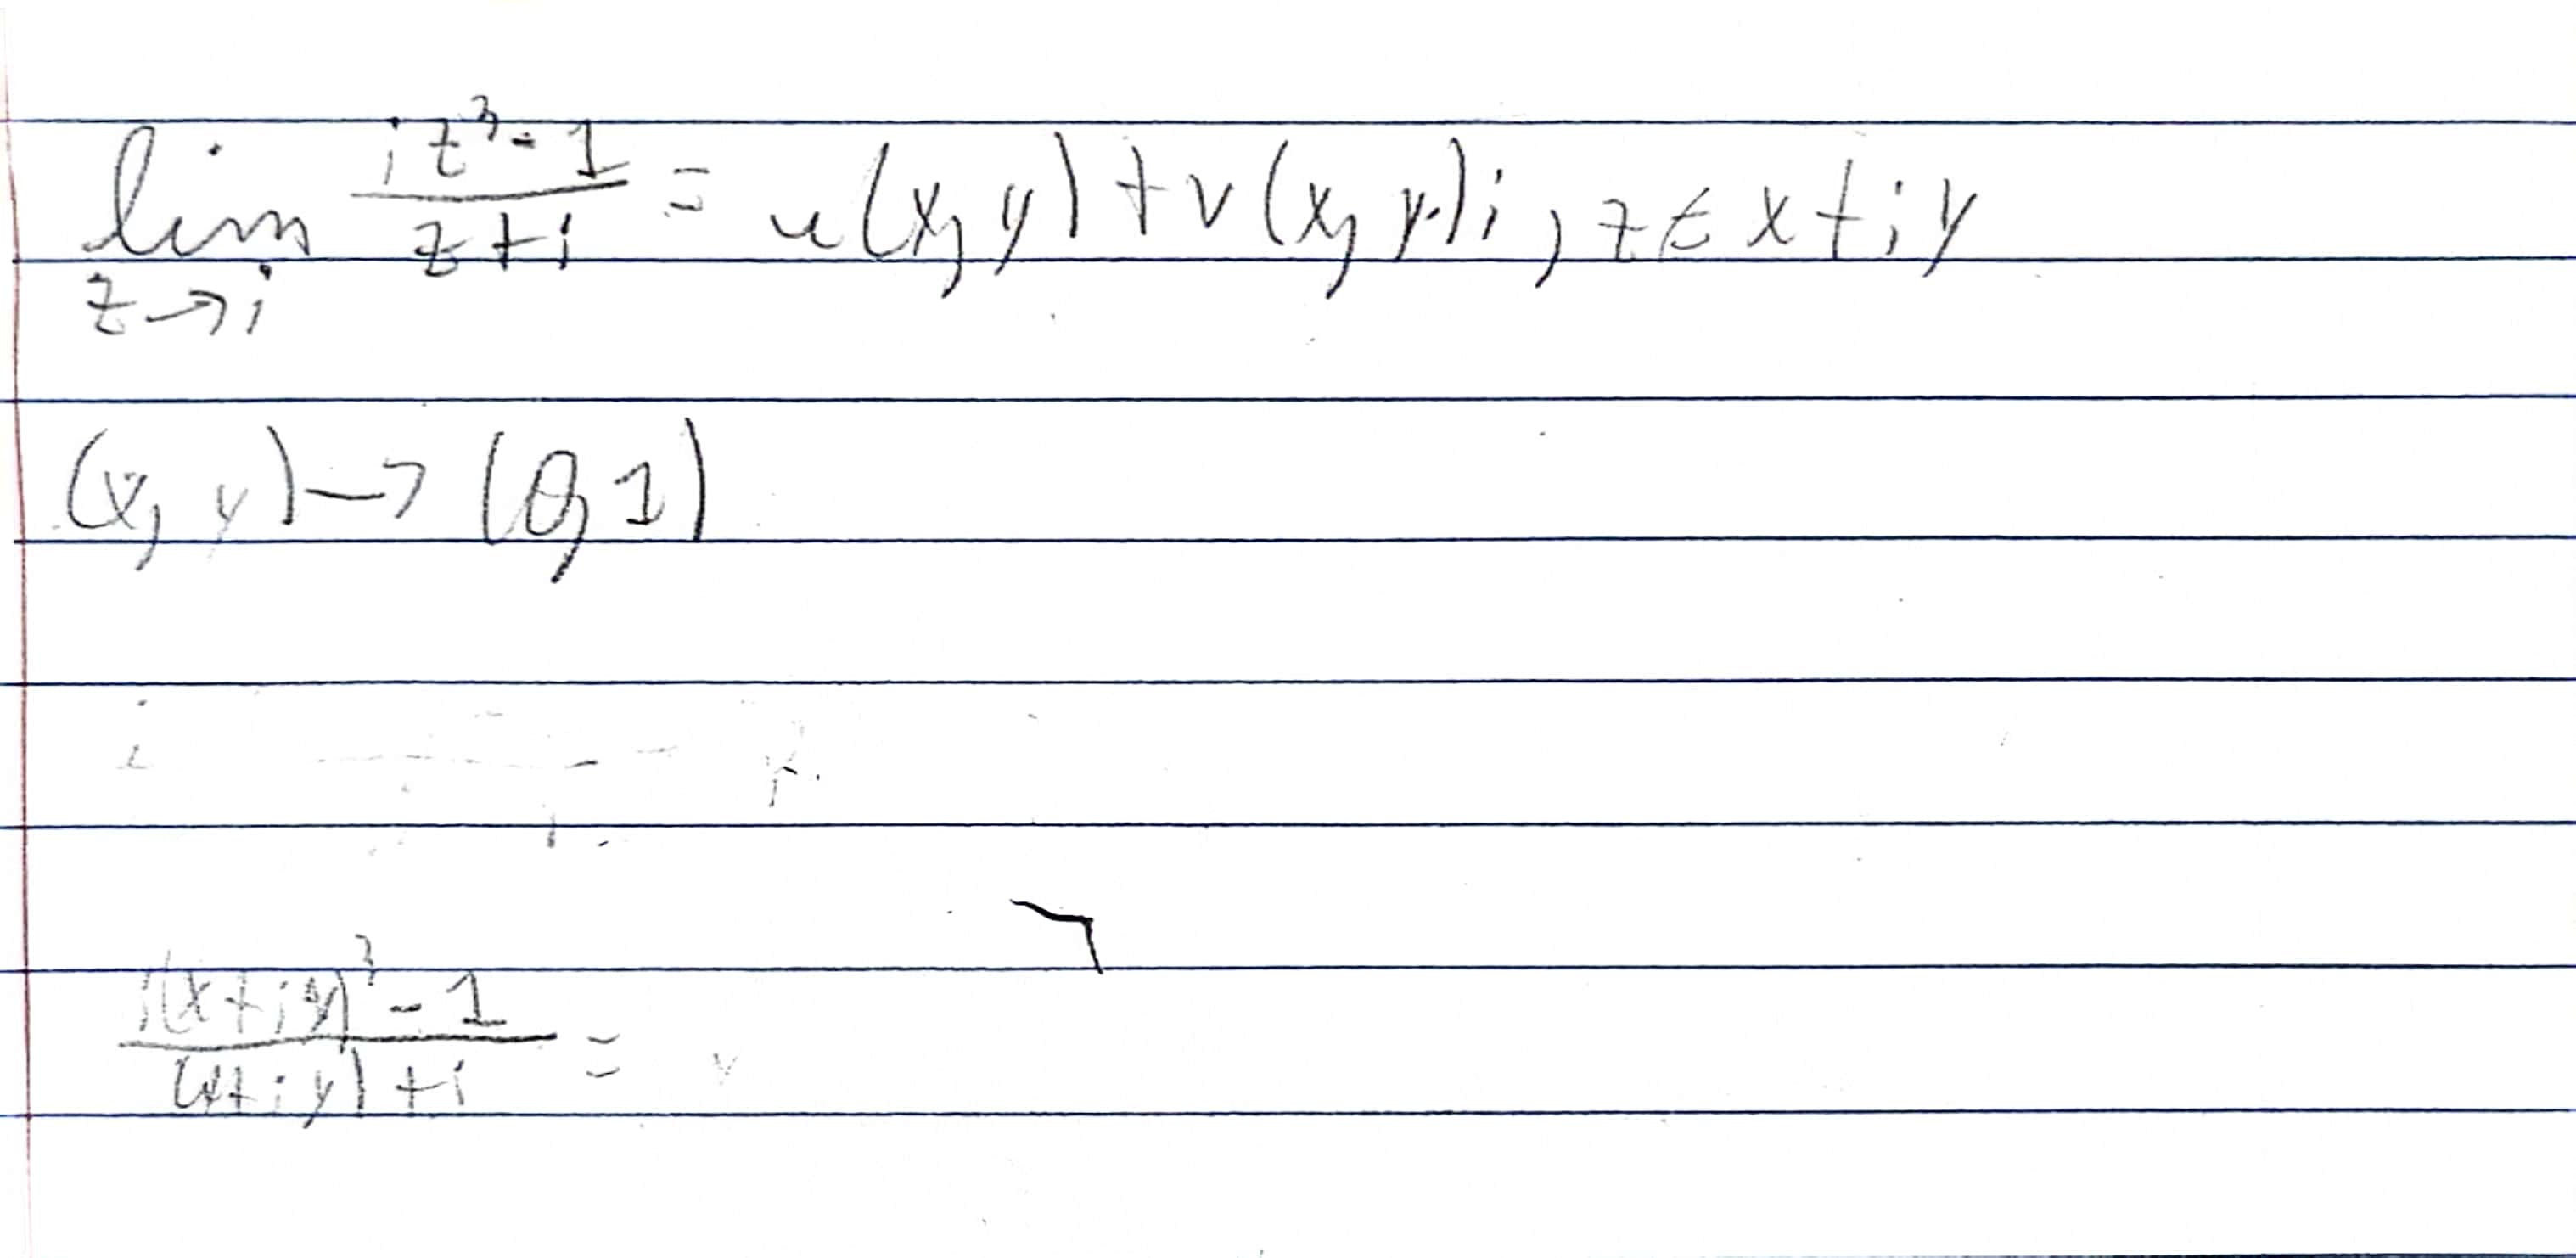 lim z→i (iz³ - 1)/(z + i) = u(x, y) + v(x, y)i, z ∈ x + iy
(x, y) → (0, 1)
(i(x + iy)³ - 1)/((x + iy) + i) =